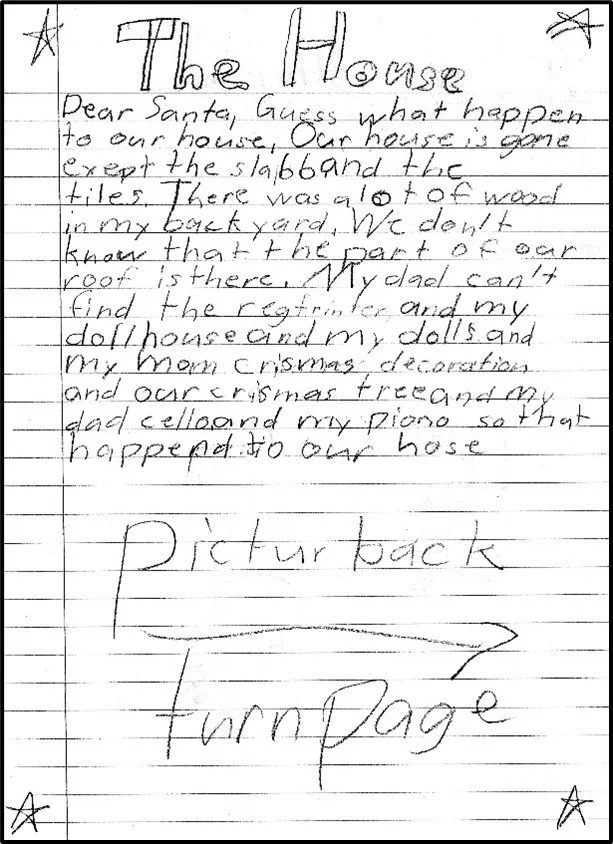 The House
Dear Santa, Guess what happen
to our house, Our house is gone
exept the slabband the
tiles. There was a lot of wood
in my backyard. We don't
know that the part of our
roof is there. My dad can't
find the and my
dollhouse and my dolls and
my mom crismas decoration
and our crismas tree and my
dad cello and my piono so that
happend to our hose
Pictur back
turn page